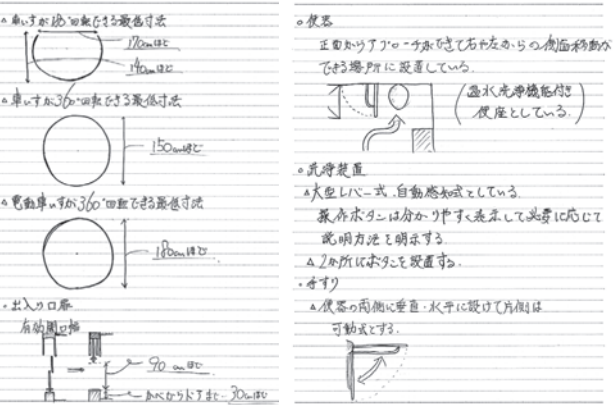 △車いすが180°回転できる最低寸法
170cmほど
140cmほど
△車いすが360°回転できる最低寸法
150cmほど
△電動車いすが360°回転できる最低寸法
180cmほど
・出入り口扉
有効開口幅
90cmほど
かべからドアまで 30cmほど
○便器
正面からアプローチができて右や左からの側面移動が
できる場所に設置している。
(温水洗浄機能付き
便座としている。)
○洗浄装置
△大型レバー式、自動感知式としている。
操作ボタンは分かりやすく表示して必要に応じて
説明方法を明示する。
△2か所にボタンを設置する。
・手すり
△便器の両側に垂直・水平に設けて片側は
可動式とする。